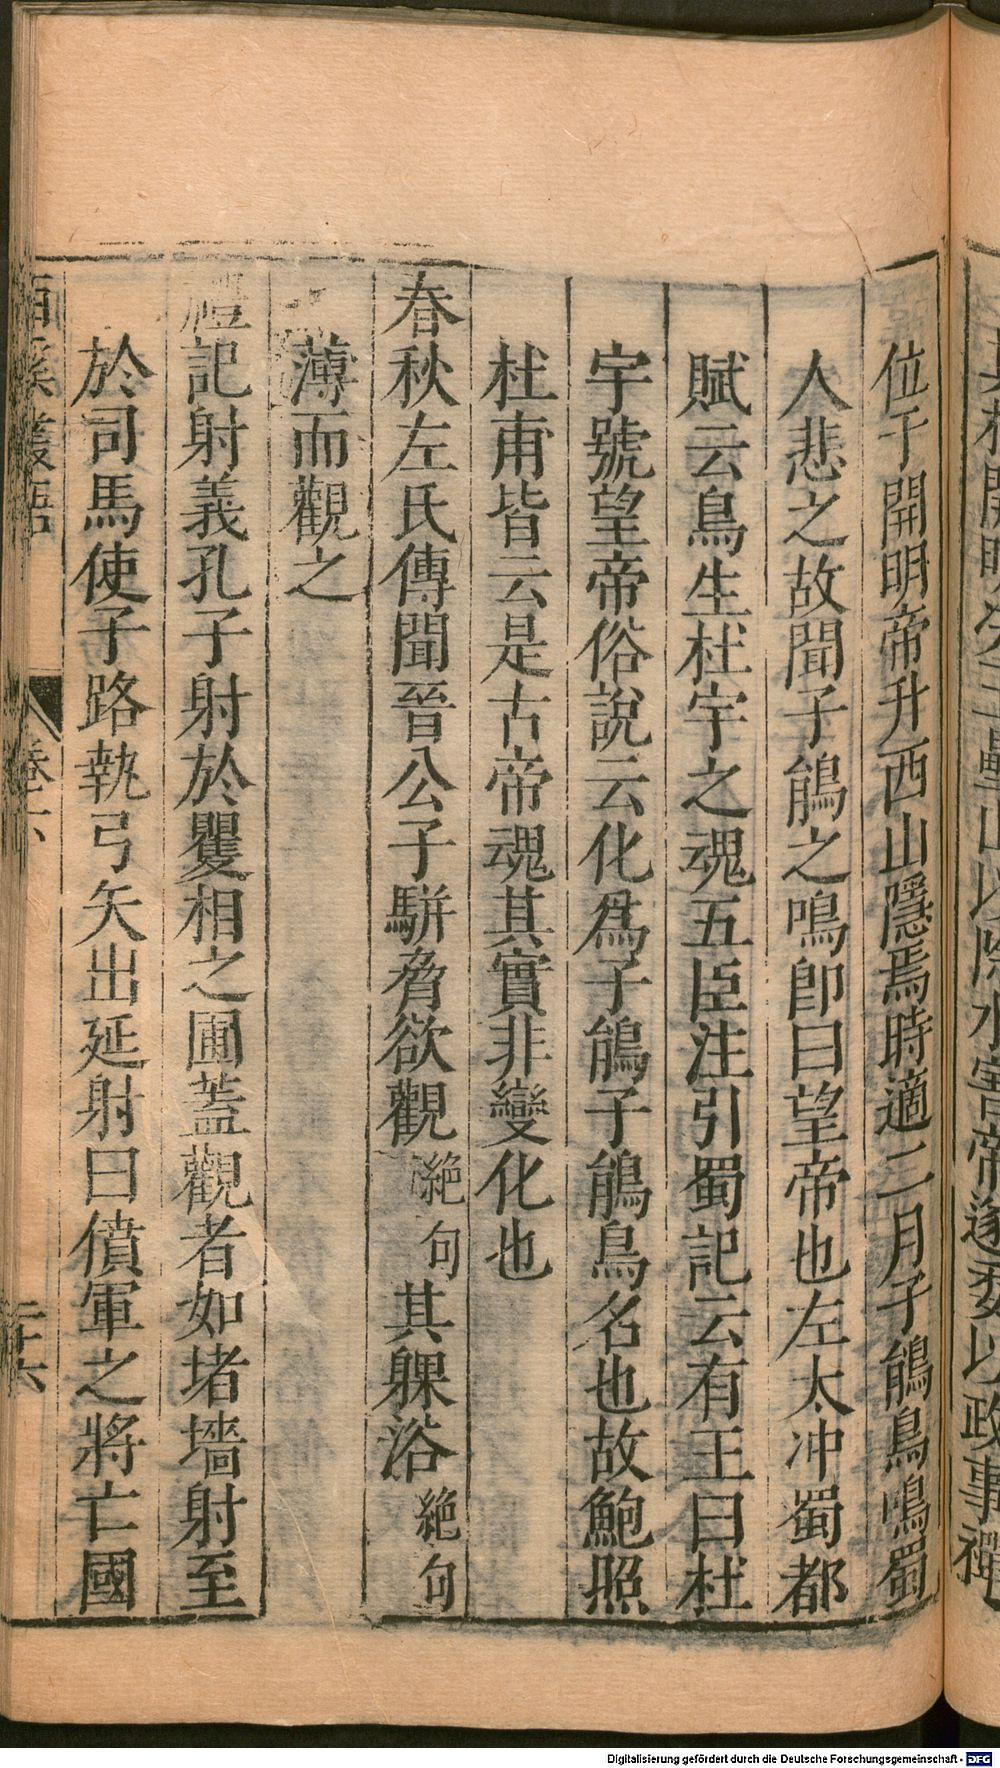 位于開明帝升西山隱焉時適二月子鵑鳥鳴蜀
人悲之故聞子鵑之鳴卽曰望帝也左太冲蜀都
賦云鳥生杜宇之魂五臣注引蜀記云有王曰杜
宇號望帝俗說云化爲子鵑子鵑鳥名也故鮑照
杜甫皆云是古帝魂其實非變化也
春秋左氏傳聞晉公子駢脅欲觀絶句其躶浴絶句
薄而觀之
禮記射義孔子射於矍相之圃蓋觀者如堵墻射至
於司馬使子路執弓矢出延射曰僨軍之將亡國
西溪叢語
卷下
Digitalisierung gefördert durch die Deutsche Forschungsgemeinschaft - DFG